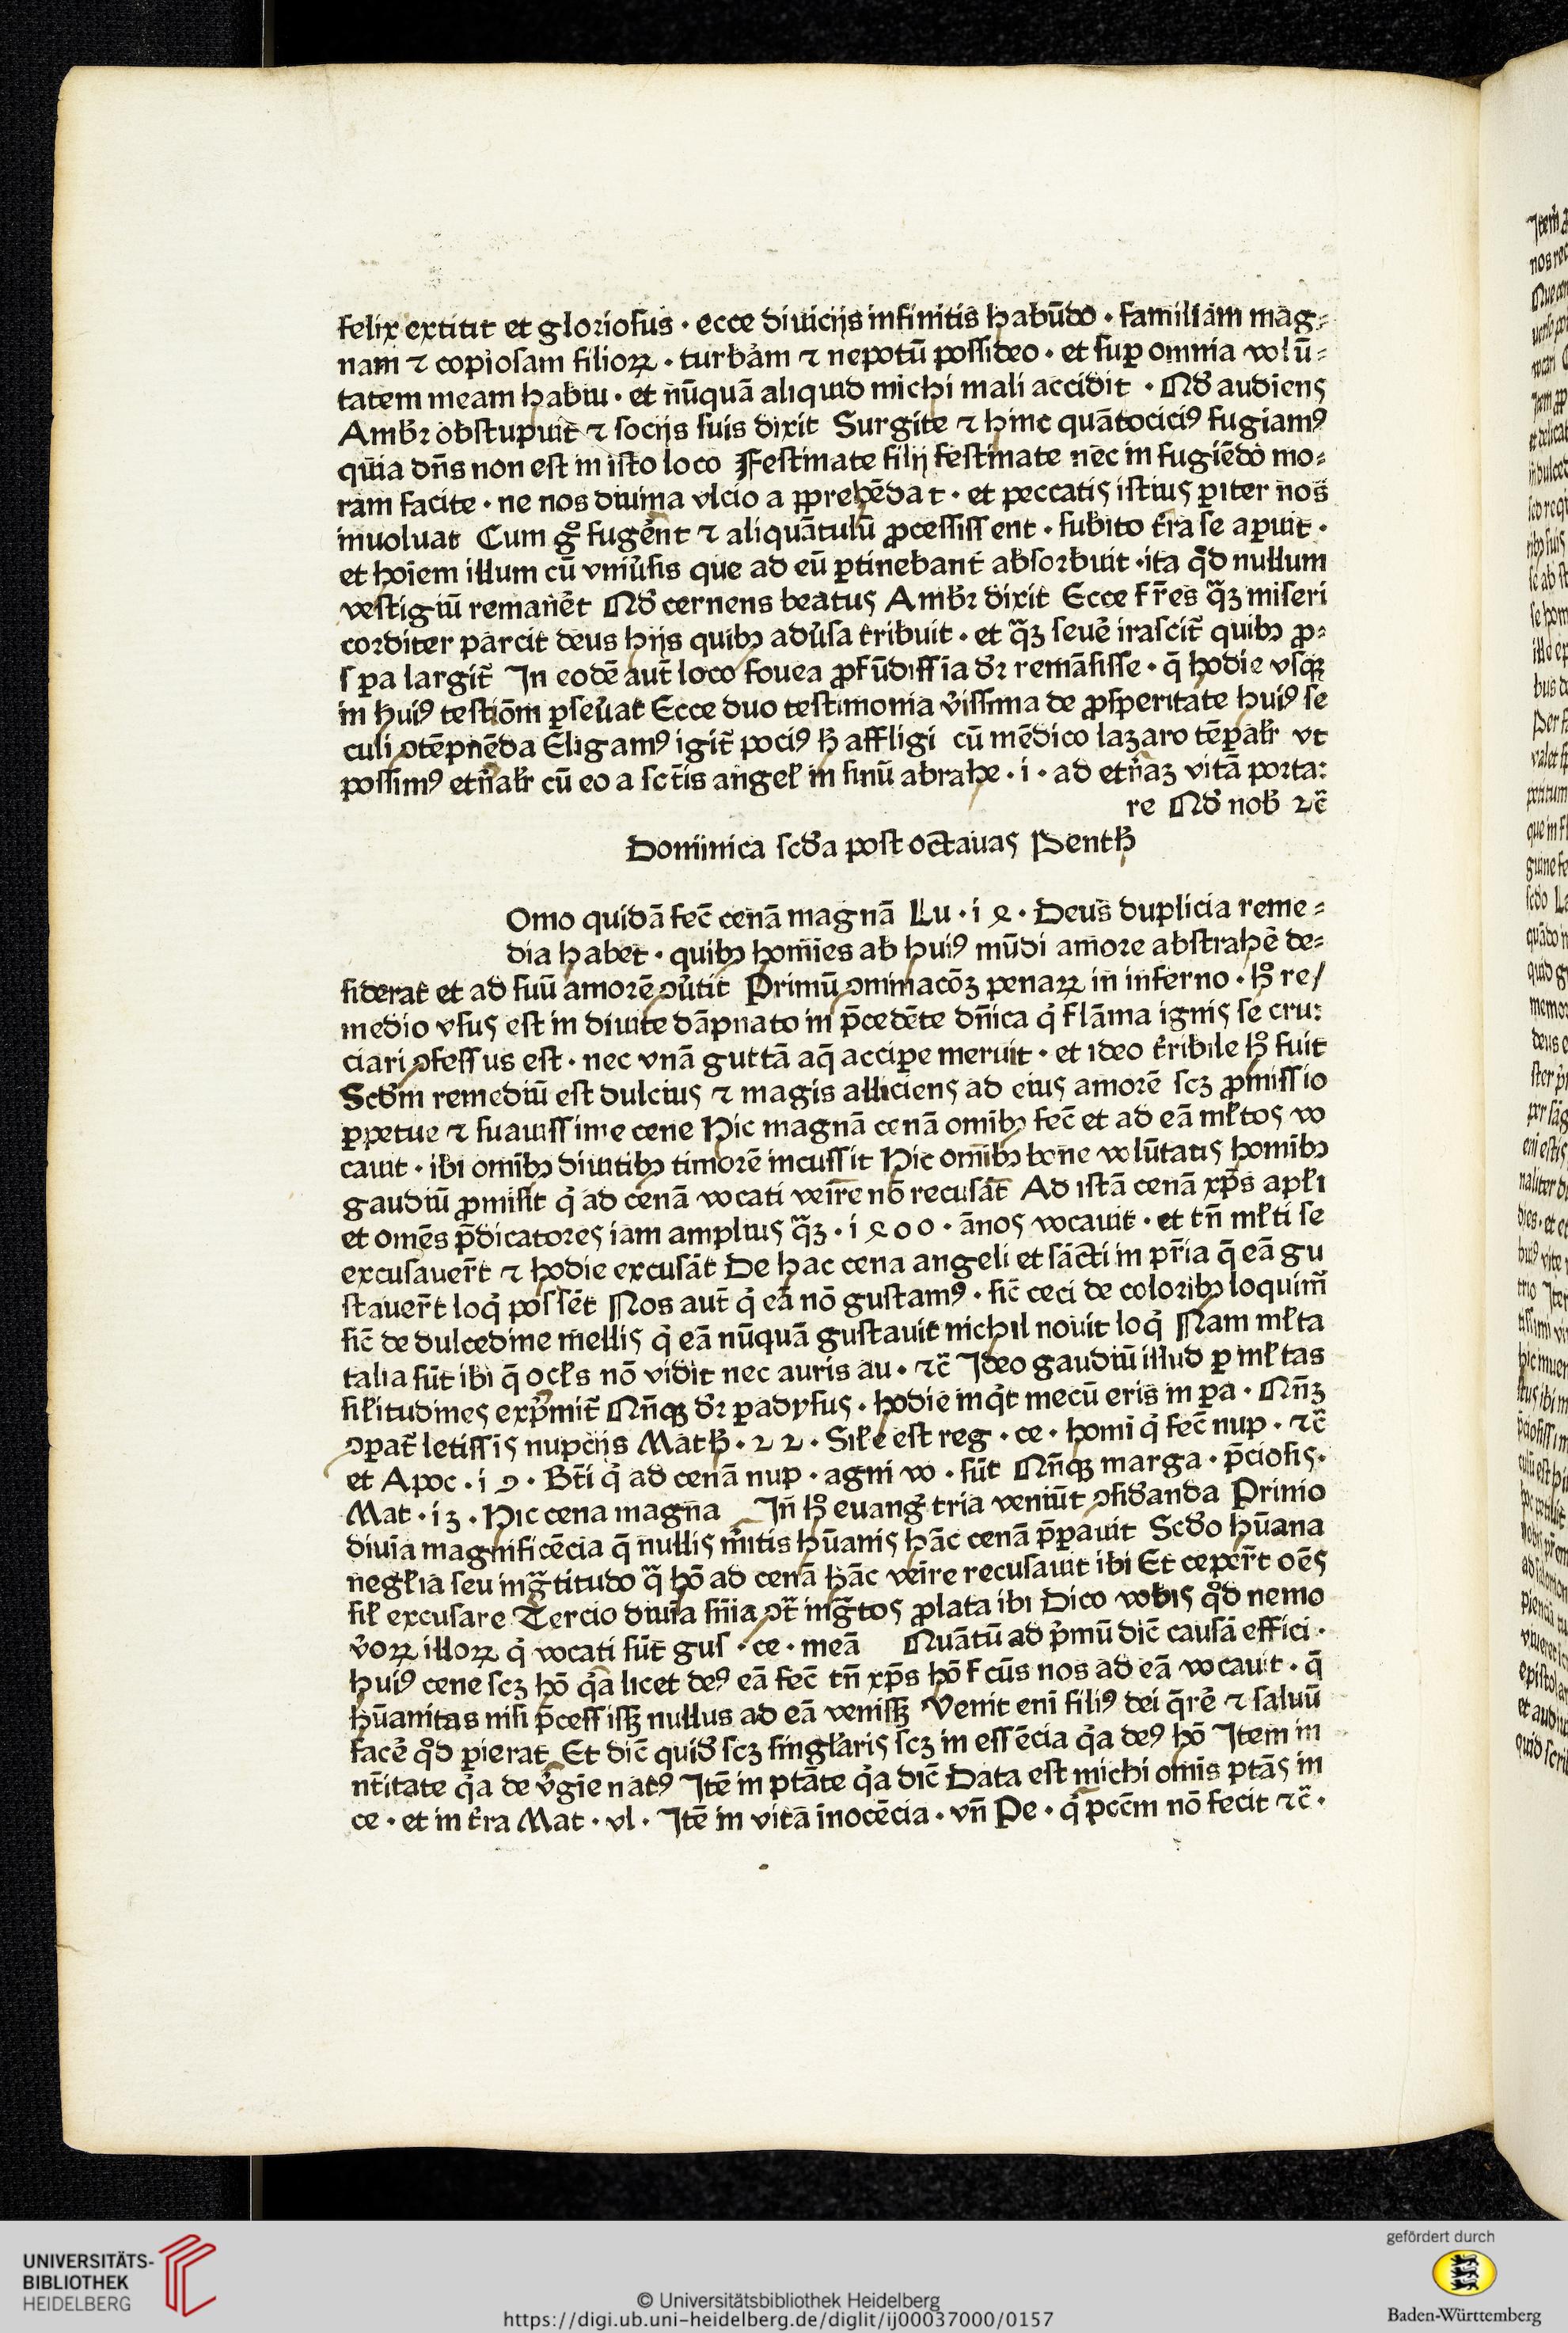 felix extitit et gloriosus · ecce diuicijs infinitis habūdo · familiam mag⸗
nam ⁊ copiosam filioꝝ · turbam ⁊ nepotū possideo · et sup omnia volū⸗
tatem meam habui · et nūquā aliquid michi mali accidit · Qd̛ audiens
Ambr̄ obstupuit ⁊ socijs suis dixit Surgite ⁊ hinc quātociciꝰ fugiamꝰ
quia dn̄s non est in isto loco Festinate filij festinate nec in fugiēdo mo⸗
ram facite · ne nos diuina vlcio a ꝓprehēdat · et peccatis istius ꝑiter nos
inuoluat Cum gͦ fuger̄nt ⁊ aliquātulū ꝓcessissent · subito t̄ra se aperuit ·
et hoīem illum cū vniūsis que ad eū ꝑtinebant absorbuit · ita qd̛ nullum
vestigiū remanēt Qd̛ cernens beatus Ambr̄ dixit Ecce fr̄es qᷓꝫ miseri
corditer parcit deus hijs quibꝫ adūsa tribuit · et qᷓꝫ seuē irascit̄ quibꝫ ꝓ⸗
spa largit̄ In eodē aut̄ loco fouea ꝓfūdissīa dr̄ remāsisse · q̄ hodie vsqꝫ
in huiꝰ testiōm ꝑseūat Ecce duo testimonia v̄issima de ꝓsperitate huiꝰ se
culi ꝯtēpnēda Eligamꝰ igit̄ pociꝰ hͨ affligi cū mēdico lazaro tēꝑalr̄ vt
possimꝰ etn̄alr̄ cū eo a sct̄is angel̄ in sinū abrahe · i · ad etn̄aꝫ vitā porta⸗
re Qd̛ nob̄ ⁊c̄
Dominica scd̛a post octauas Penth̄
Omo quidā fec̄ cenā magnā Lu · i 4 · Deus duplicia reme⸗
dia habet · quibꝫ homīes ab huiꝰ mūdi amore abstrahē de⸗
siderat et ad suū amorē ꝯūtit Primū ꝯminacōꝫ penaꝝ in inferno · hͦ re/
medio vsus est in diuite dāpnato in p̄cedēte dn̄ica qͥ flāma ignis se cru⸗
ciari ꝯfessus est · nec vnā guttā aq̄ accipe meruit · et ideo t̄ribile hͦ fuit
Scd̛m remediū est dulcius ⁊ magis alliciens ad eius amorē scꝫ ꝓmissio
ꝑpetue ⁊ suauissime cene Hic magnā cenā omībꝫ fec̄ et ad eā ml̄tos vo
cauit · ibi omībꝫ diuitibꝫ timorē incussit Hic omībꝫ bone volūtatis homībꝫ
gaudiū ꝓmisit qͥ ad cenā vocati veīre nō recusāt Ad istā cenā xp̄s apl̄i
et omēs p̄dicatores iam amplius qᷓꝫ · i 4 0 0 · ānos vocauit · et tn̄ ml̄ti se
excusauer̄t ⁊ hodie excusāt De hac cena angeli et sācti in pr̄ia q̄ eā gu
stauer̄t loqͥ possēt Nos aut̄ qͥ eā nō gustamꝰ · sic̄ ceci de coloribꝫ loquim̄
sic̄ de dulcedine mellis qͥ eā nūquā gustauit nichil nouit loqͥ Nam ml̄ta
talia sūt ibi q̄ ocl̄s nō vidit nec auris au · ⁊c̄ Ideo gaudiū illud ꝑ ml̄tas
sil̄itudines expͥmit̄ Qn̄qꝫ dr̄ ꝑadysus · hodie inqͥt mecū eris in ꝑa · Qn̄ꝫ
ꝯpat̄ letissis nupcijs Math̄ · 2 2 · Sil̄e est reg · ce · homi qͥ fec̄ nup · ⁊c̄
et Apoc · i 9 · Bt̄i qͥ ad cenā nup · agni vo · sūt Qn̄qꝫ marga · p̄ciosis ·
Mat · i3 · Hic cena magna In̄ hͦ euangͥ tria veniūt ꝯsid̛anda Primo
diuīa magnificēcia q̄ nullis m̄itis hūanis hāc cenā p̄pauit Scd̛o hūana
negl̄ia seu ingᷓtitudo qᷓ hō ad cenā hāc veīre recusauit ibi Et ceper̄t oēs
sil̄ excusare Tercio diuīa sn̄ia ꝯt̄ ingᷓtos ꝓlata ibi Dico vobis qd̛ nemo
v̄oꝝ illoꝝ qͥ vocati sūt gus · ce · meā Quātū ad pͥmū dic̄ causā effici ·
huiꝰ cene scꝫ hō qͥa licet deꝰ eā fec̄ tn̄ xp̄s hō fcūs nos ad eā vocauit · q̄
hūanitas nisi p̄cessissꝫ nullus ad eā venissꝫ Venit eni filiꝰ dei q̄rē ⁊ saluū
facē qd̛ perierat Et dic̄ quid̛ scꝫ singl̄aris scꝫ in essēcia qͥa deꝰ hō Item in
nt̄itate qͥa de v̄gīe natꝰ Itē in ptāte qͥa dic̄ Data est michi omīs ptās in
ce · et in t̄ra Mat · vl · Itē in vitā inocēcia · vn̄ Pe · qͥ pcc̄m nō fecit ⁊c̄ ·
UNIVERSITÄTS-
BIBLIOTHEK
HEIDELBERG
© Universitätsbibliothek Heidelberg
https://digi.ub.uni-heidelberg.de/diglit/ij00037000/0157
gefördert durch
Baden-Württemberg